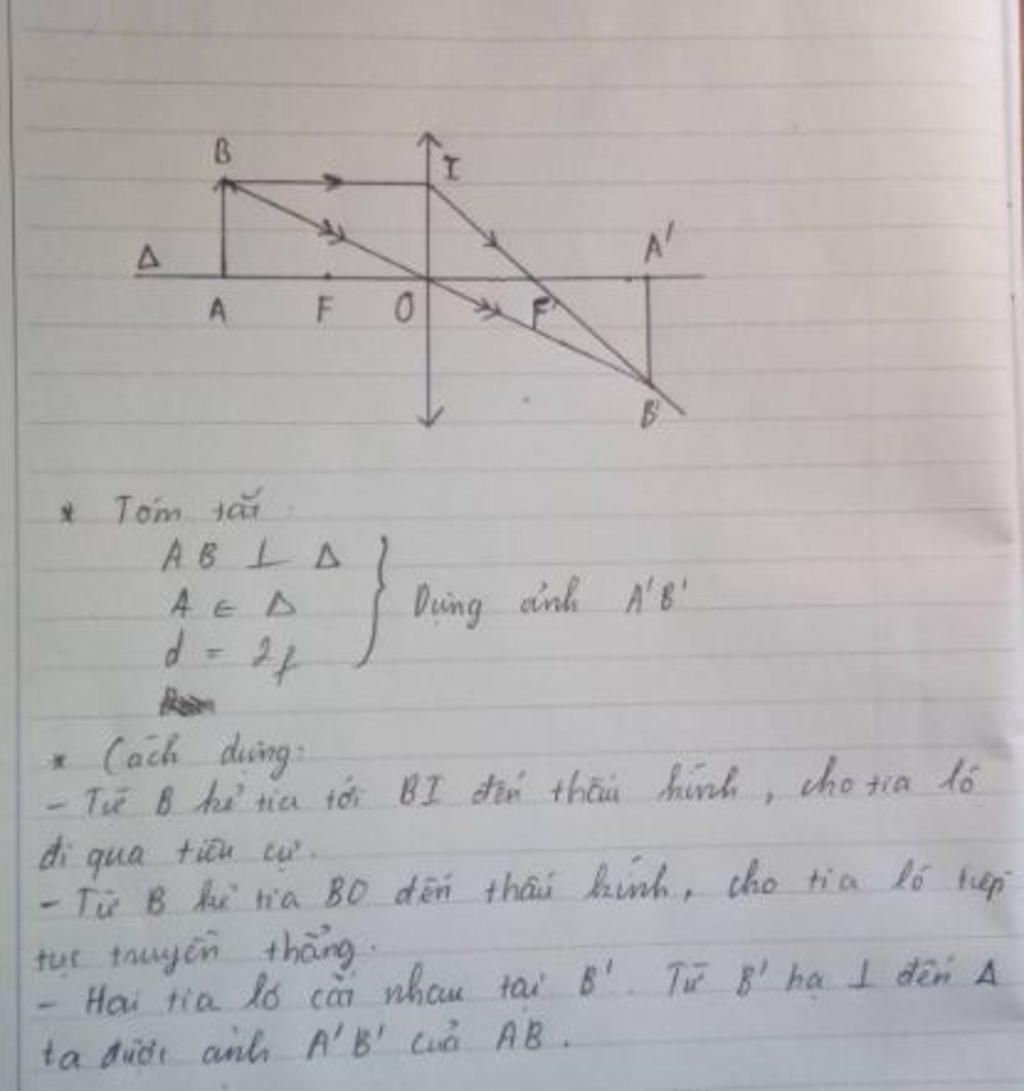 B
I
Δ
A'
A F O F'
B'
* Tóm tắt:
AB ⊥ Δ
A ∈ Δ } Dựng ảnh A'B'
d = 2f
* Cách dựng:
- Từ B kẻ tia tới BI đến thấu kính, cho tia ló
đi qua tiêu cự.
- Từ B kẻ tia BO đến thấu kính, cho tia ló tiếp
tục truyền thẳng.
- Hai tia ló cắt nhau tại B'. Từ B' hạ ⊥ đến Δ
ta được ảnh A'B' của AB.